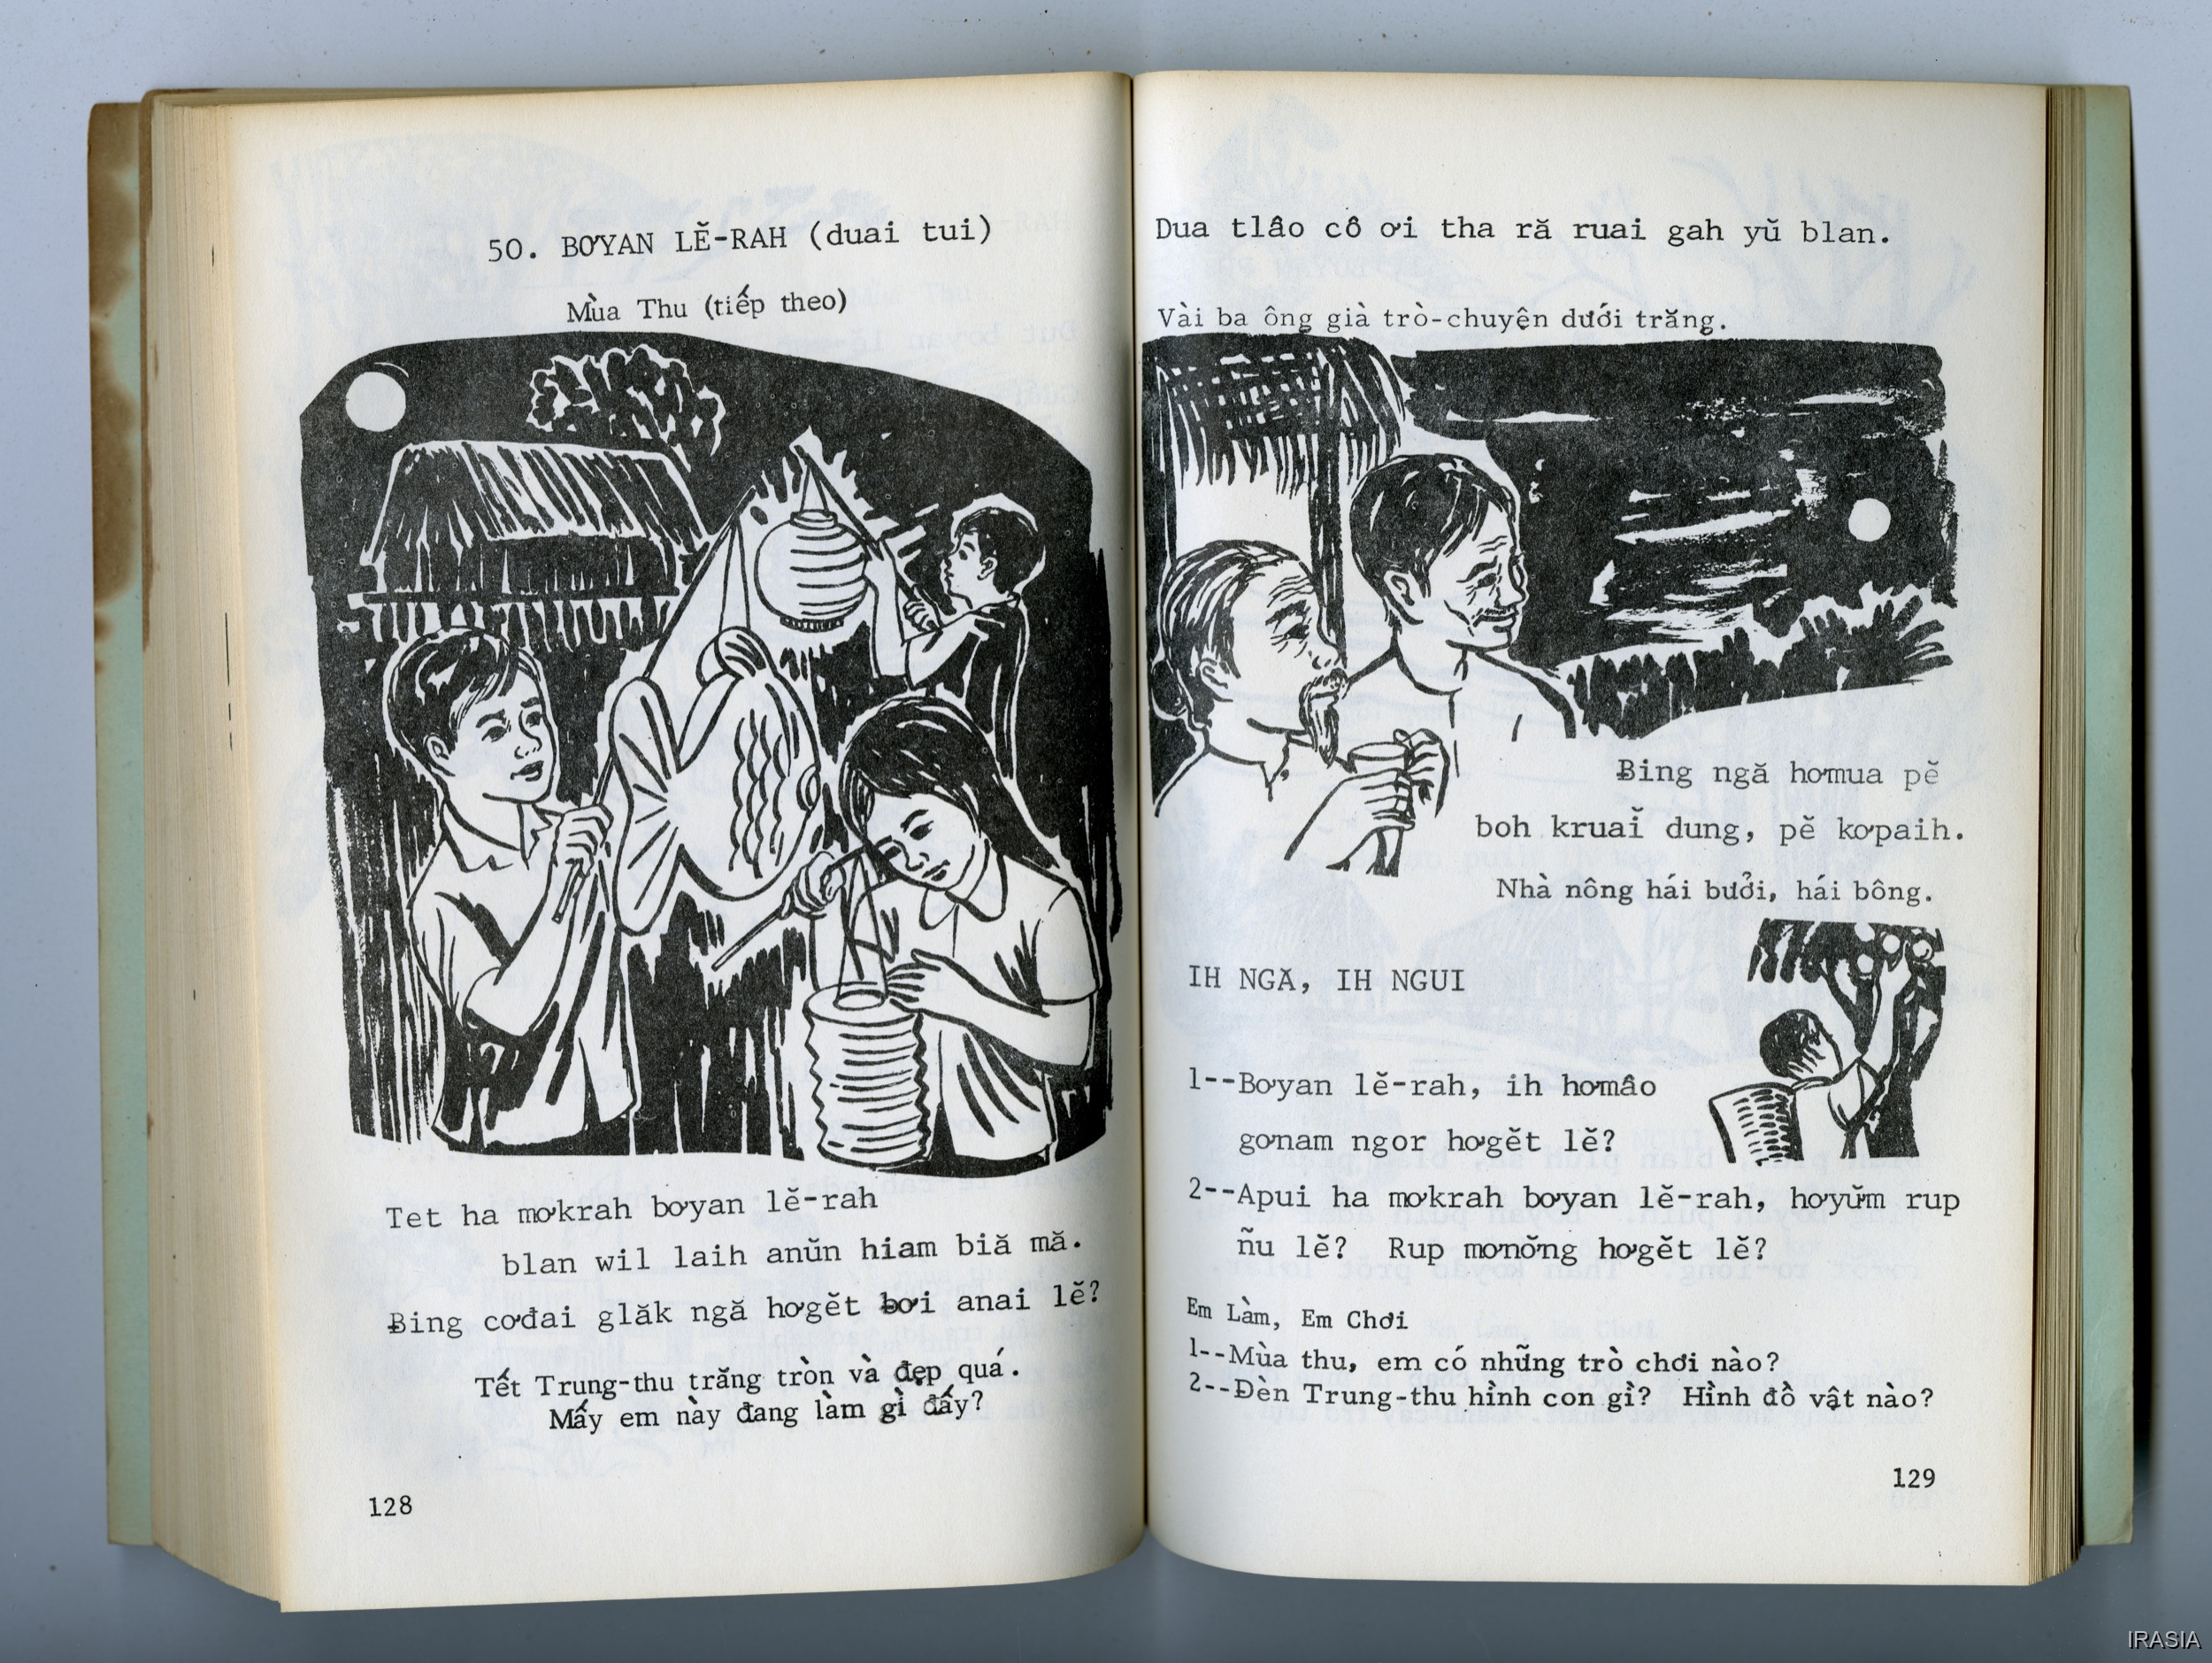 50. BƠYAN LĔ-RAH (duai tui)
Mùa Thu (tiếp theo)
Tet ha mơkrah bơyan lĕ-rah
blan wil laih anŭn hiam biă mă.
Ƀing cơđai glăk ngă hơgĕt ƀơi anai lĕ?
Tết Trung-thu trăng tròn và đẹp quá.
Mấy em này đang làm gì đấy?
128
Dua tlâo cô ơi tha ră ruai gah yŭ blan.
Vài ba ông già trò-chuyện dưới trăng.
Ƀing ngă hơmua pĕ
boh kruaĭ dung, pĕ kơpaih.
Nhà nông hái bưởi, hái bông.
IH NGĂ, IH NGUI
1--Bơyan lĕ-rah, ih hơmâo
gơnam ngor hơgĕt lĕ?
2--Apui ha mơkrah bơyan lĕ-rah, hơyŭm rup
ñu lĕ? Rup mơnơ̆ng hơgĕt lĕ?
Em Làm, Em Chơi
1--Mùa thu, em có những trò chơi nào?
2--Đèn Trung-thu hình con gì? Hình đồ vật nào?
129
IRASIA